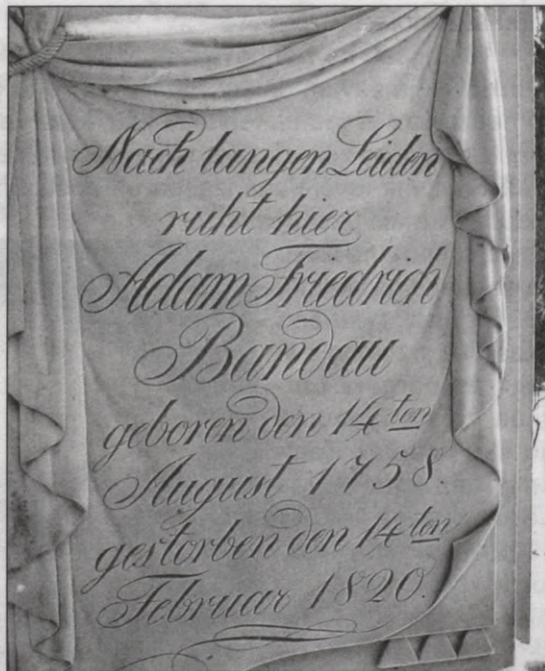 Nach langen Leiden
ruht hier
Adam Friedrich
Bandau
geboren den 14ten
August 1758.
gestorben den 14ten
Februar 1820.